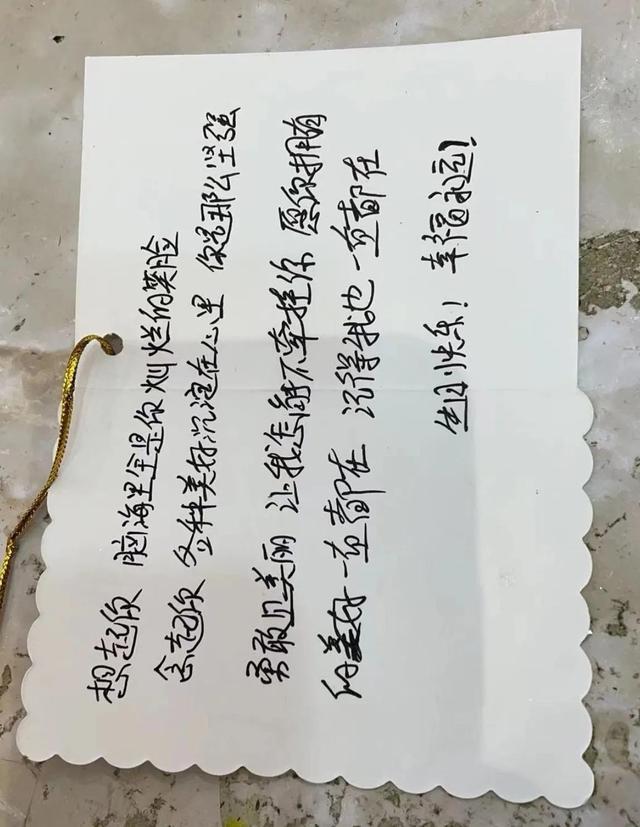 想起你 脑海里全是你灿烂的笑脸
念起你 各种美好沉淀在心里 你是那么坚强
勇敢且美丽 让我怎能不牵挂你 愿你拥有
的美好一直都在 记得我也一直都在
生日快乐！幸福永远！